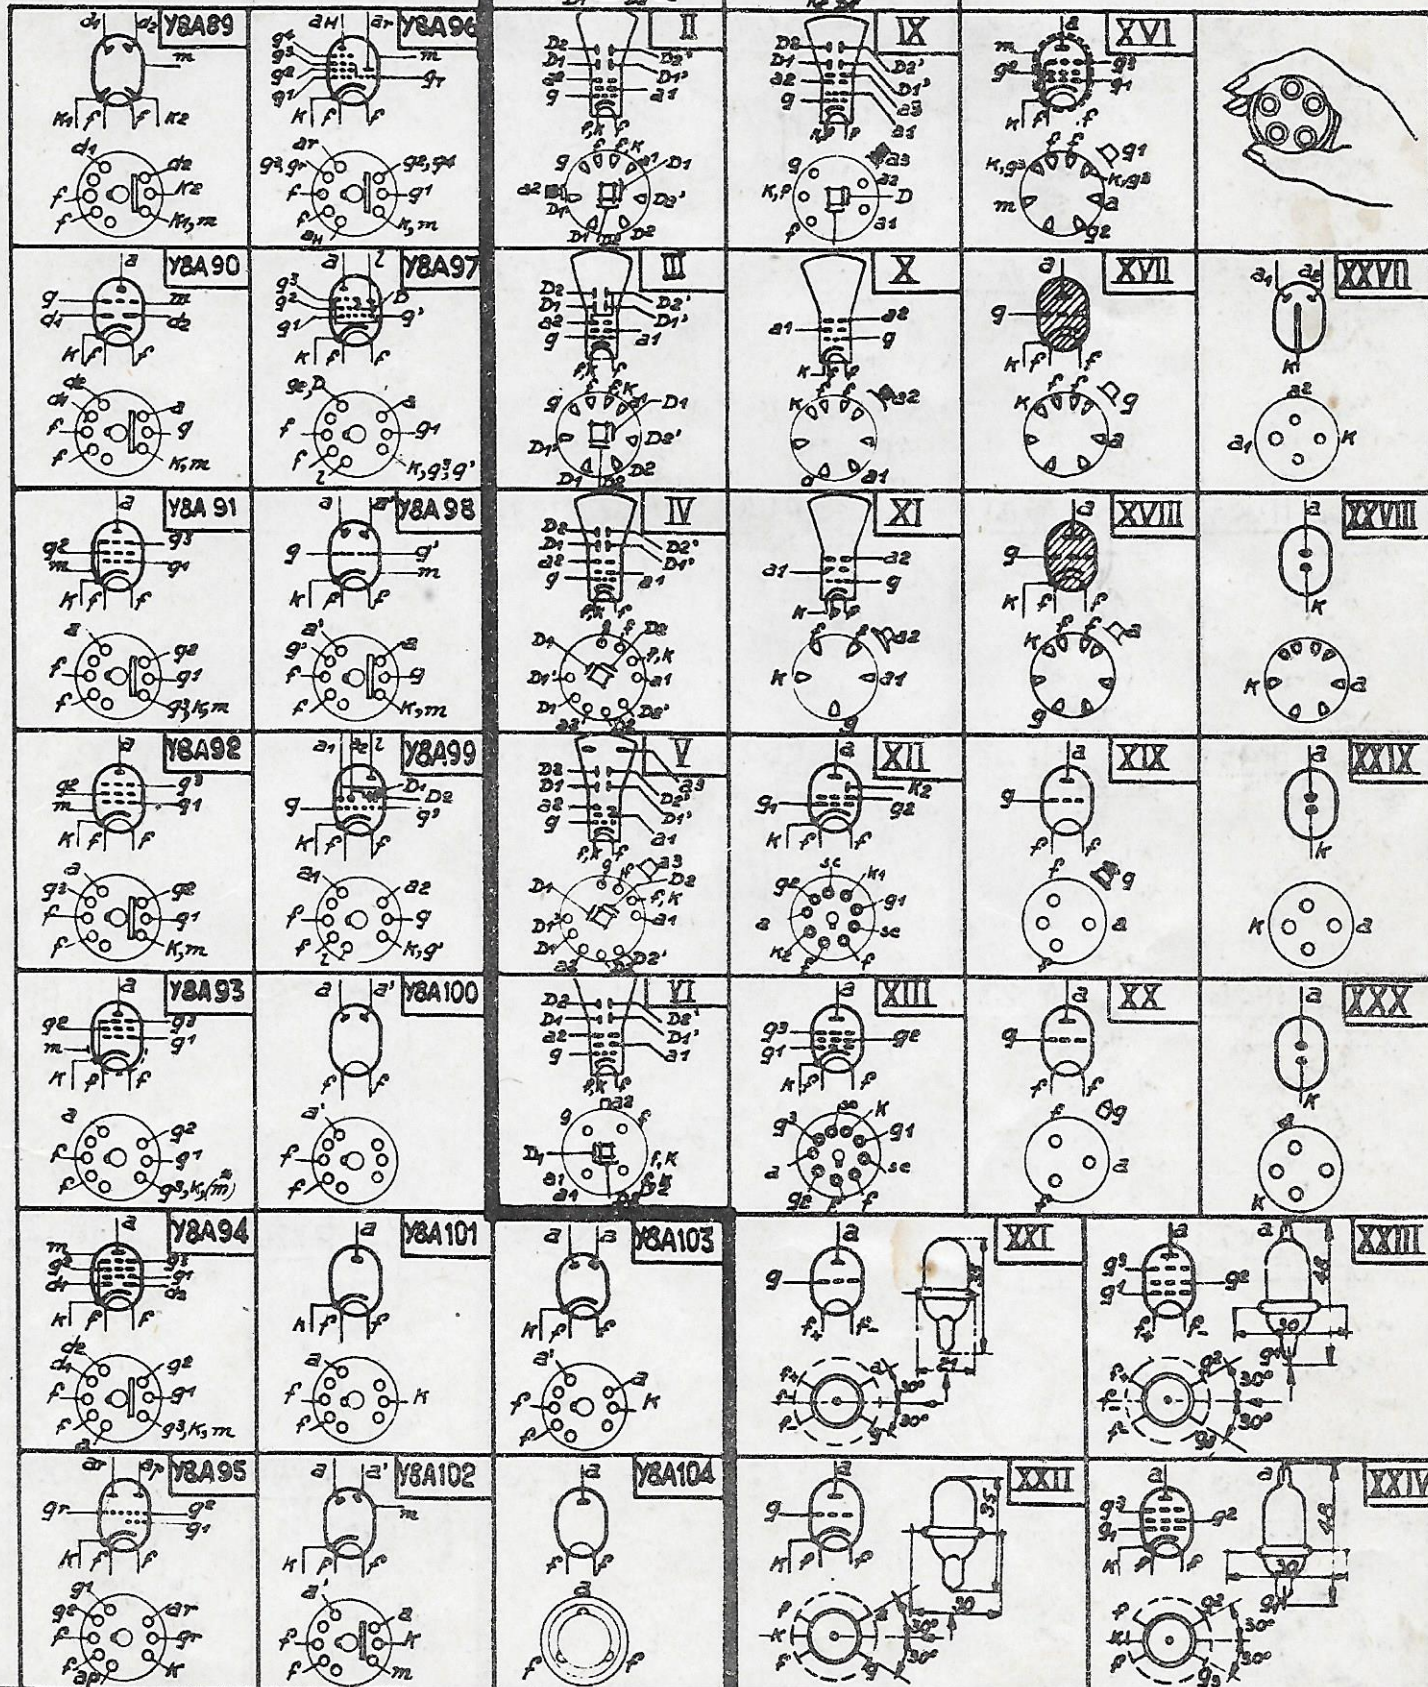 Y8A89
d1
m
K1
f
f
K2
d1
d2
K2
K1,m
f
f
Y8A96
aH
ar
g4
g3
g2
g1
m
gr
K
f
f
ar
g3,gr
g2,g4
g1
K,m
f
f
aH
II
D2
D1
a2
g
D2'
D1'
a1
f,K
f
g
f
f,K
a1
D1
a2
D2'
D1'
D1
D2
IX
D2
D1
a2
g
D2'
D1'
a3
a1
g
a3
a2
D
K,f
f
a1
XVI
a
m
g2
g3
g1
K
f
f
f
f
g1
K,g3
K,g3
m
a
g2
Y8A90
a
g
d1
m
d2
K
f
f
d2
d1
a
g
K,m
f
f
Y8A97
a
l
g3
g2
g1
D
g'
K
f
f
g2,D
a
g1
K,g3,g'
f
f
l
III
D2
D1
a2
g
D2'
D1'
a1
f,K
f
g
f
f,K
a1
D1
D2'
D1'
D1
D2
X
a1
a2
g
K
f
f
K
f
f
a2
a1
XVII
a
g
K
f
f
K
f
f
g
a
XXVII
a1
a2
K
a2
a1
K
Y8A91
a
g2
m
g3
g1
K
f
f
a
g2
g1
g3,K,m
f
f
Y8A98
a
a'
g
g'
m
K
f
f
a'
g'
a
g
K,m
f
f
IV
D2
D1
a2
g
D2'
D1'
a1
f,K
f
D1
g
f
D2
f,K
a1
D1'
D1
a2
D2'
XI
a1
a2
g
K
f
f
f
f
a2
K
a1
g
XVIII
a
g
K
f
f
K
f
f
a
g
XXVIII
a
K
K
a
Y8A92
a
g2
m
g3
g1
K
f
f
a
g3
g2
g1
K,m
f
f
Y8A99
a1
a2
l
D1
D2
g
g'
K
f
f
a1
a2
g
K,g'
f
f
l
V
D2
D1
a2
g
a3
D2'
D1'
a1
f,K
f
D1
g
f
a3
D2
f,K
a1
D1'
D1
a2
D2'
XII
a
K2
g1
g2
K
f
f
sc
K1
g2
g1
a
sc
K2
f
f
XIX
a
g
f
f
f
g
a
f
XXIX
a
K
K
a
Y8A93
a
g2
m
g3
g1
K
f
f
a
g2
g1
g3,K,(m)
f
f
Y8A100
a
a'
f
f
a'
f
f
VI
D2
D1
a2
g
D2'
D1'
a1
f,K
f
a2
g
f
D1
f,K
a1
a1
XIII
a
g3
g1
g2
K
f
f
K
g3
g1
a
sc
g2
f
f
XX
a
g
f
f
f
g
a
f
XXX
a
K
a
K
Y8A94
a
m
g2
d1
g3
g1
d2
K
f
f
d2
d1
g2
g1
g3,K,m
f
f
a
Y8A101
a
K
f
f
a
K
f
f
Y8A103
a
a
K
f
f
a'
a
K
f
f
XXI
a
g
f+
f-
21
f+
f-
a
g
30°
30°
XXIII
a
g3
g1
g2
f+
f-
a
48
30
g1
f+
f-
g2
g3
30°
30°
Y8A95
ar
ap
gr
g2
g1
K
f
f
g1
g2
ar
gr
K
f
f
ap
Y8A102
a
a'
m
K
f
f
a'
a
K
m
f
f
Y8A104
a
f
f
a
f
f
XXII
a
g
K
f
f
35
30
f
K
f
a
g
30°
30°
XXIV
a
g3
g1
g2
K
f
f
a
48
30
g1
f
K
f
g2
g3
30°
30°